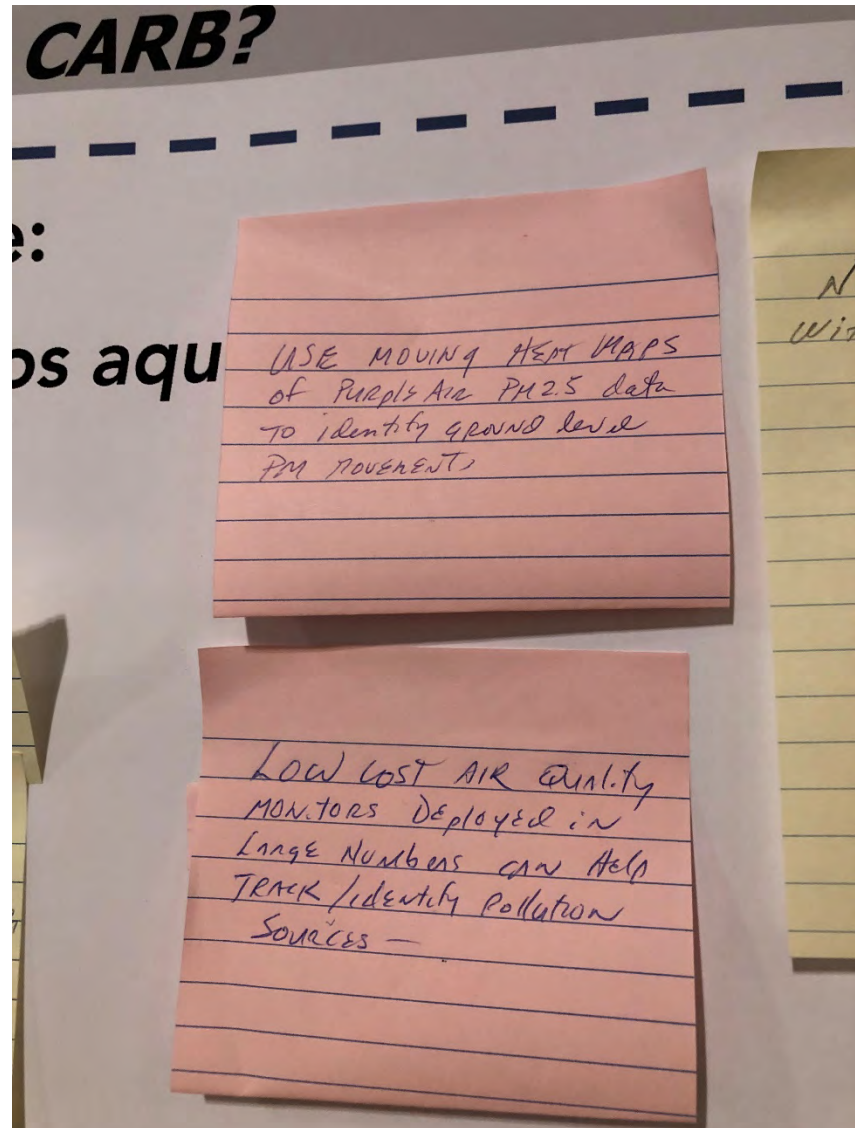 CARB?
e:
os aqu
USE MOVING HEAT MAPS
of PurplE AIR PM2.5 data
TO identify GROUND level
PM MOVEMENT.
N
Wit
LOW COST AIR QuAlity
MONITORS DEployed iN
LARgE NUMbERS CAN HElp
TRACK/idENtify Pollution
SOURCES —